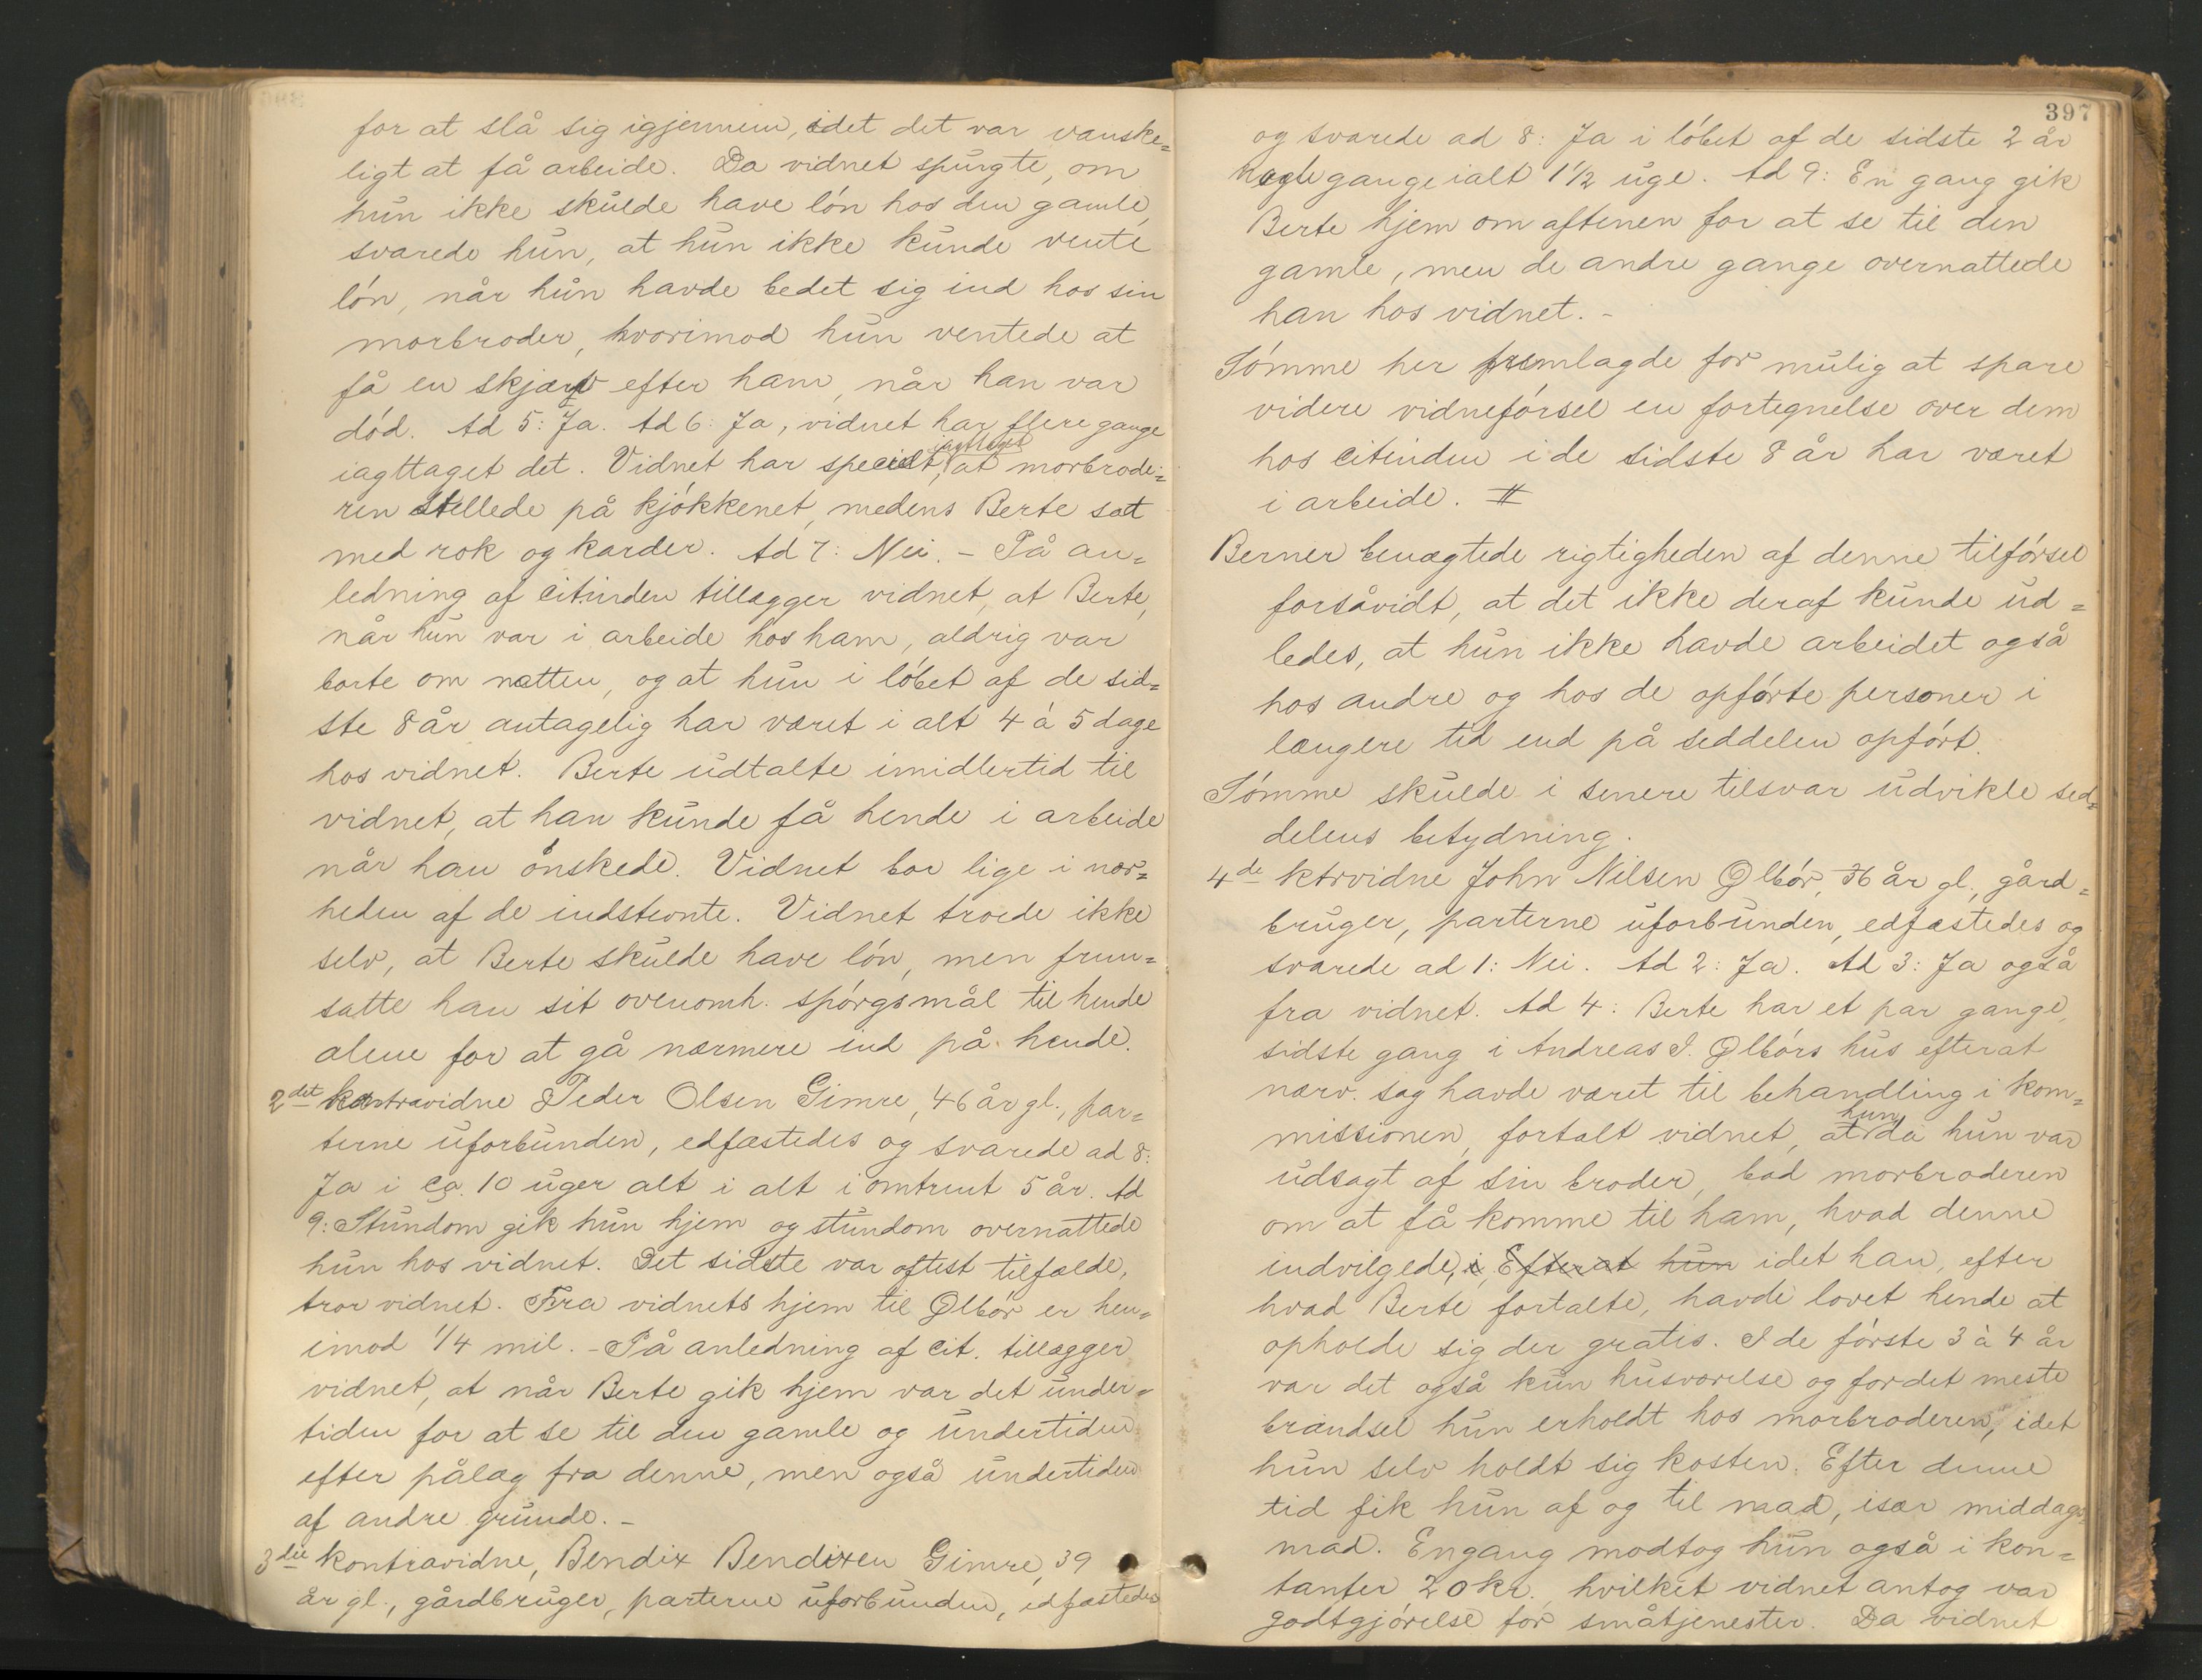 for at slå sig igjennem, idet det var vanske=
ligt at få arbeide. Da vidnet spurgte, om
hun ikke skulde have løn hos den gamle,
svarede hun, at hun ikke kunde vente
løn, når hun havde bedet sig ind hos sin
morbroder, hvorimod hun ventede at
få en skjærv efter ham, når han var
død. Ad 5: Ja. Ad 6: Ja, vidnet har flere gange
iagttaget det. Vidnet har specielt iagttaget, at morbrode=
ren stellede på kjøkkenet, medens Berte sat
med rok og karder. Ad 7: Nei. - På an=
ledning af citinden tillægger vidnet, at Berte,
når hun var i arbeide hos ham, aldrig var
borte om natten, og at hun i løbet af de sid=
ste 8 år antagelig har været i alt 4 à 5 dage
hos vidnet. Berte udtalte imidlertid til
vidnet, at han kunde få hende i arbeide
når han ønskede. Vidnet bor lige i nær=
heden af de indstevnte. Vidnet troede ikke
selv, at Berte skulde have løn, men frem=
satte han sit ovenomh. spørgsmål til hende
alene for at gå nærmere ind på hende.
2det kontravidne Peder Olsen Gimre, 46 år gl., par=
terne uforbunden, edfæstedes og svarede ad 8:
Ja i ca. 10 uger alt i alt i omtrent 5 år. Ad
9: Stundom gik hun hjem og stundom overnattede
hun hos vidnet. Det sidste var oftest tilfælde,
tror vidnet. Fra vidnets hjem til Ølbør er hen=
imod 1/4 mil. - På anledning af cit. tillægger
vidnet, at når Berte gik hjem var det under=
tiden for at se til den gamle og undertiden
efter pålæg fra denne, men også undertiden
af andre grunde. -
3die kontravidne, Bendix Bendixen Gimre, 39
år gl., gårdbruger, parterne uforbunden, edfæstedes
397
og svarede ad 8: Ja i løbet af de sidste 2 år
nogle gange ialt 1 1/2 uge. Ad 9: En gang gik
Berte hjem om aftenen for at se til den
gamle, men de andre gange overnattede
han hos vidnet. -
Sømme her fremlagde for mulig at spare
videre vidneførsel en fortegnelse over dem
hos citinden i de sidste 8 år har været
i arbeide. #
Berner benægtede rigtigheden af denne tilførsel
forsåvidt, at det ikke deraf kunde ud=
ledes, at hun ikke havde arbeidet også
hos andre og hos de opførte personer i
længere tid end på seddelen opført.
Sømme skulde i senere tilsvar udvikle sed=
delens betydning.
4de ktrvidne John Nilsen Ølbør, 36 år gl., gård=
bruger, parterne uforbunden, edfæstedes og
svarede ad 1: Nei. Ad 2: Ja. Ad 3: Ja også
fra vidnet. Ad 4: Berte har et par gange,
sidste gang i Andreas I. Ølbørs hus efterat
nærv. sag havde været til behandling i kom=
missionen, fortalt vidnet, at hun da hun var
udsagt af sin broder, bad morbroderen
om at få komme til ham, hvad denne
indvilgede, i, Efterat hun idet han, efter
hvad Berte fortalte, havde lovet hende at
opholde sig der gratis. I de første 3 à 4 år
var det også kun husværelse og for det meste
brændsel hun erholdt hos morbroderen, idet
hun selv holdt sig kosten. Efter denne
tid fik hun af og til mad, især middags=
mad. Engang modtog hun også i kon=
tanter 20 kr. hvilket vidnet antog var
godtgjørelse for småtjenester. Da vidnet